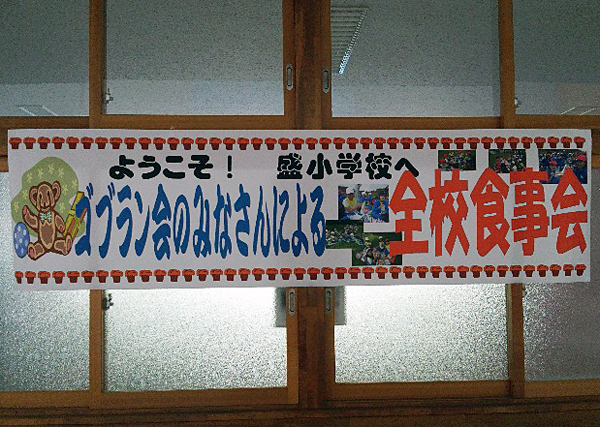 ようこそ！ 盛小学校へ
ゴブラン会のみなさんによる 全校食事会